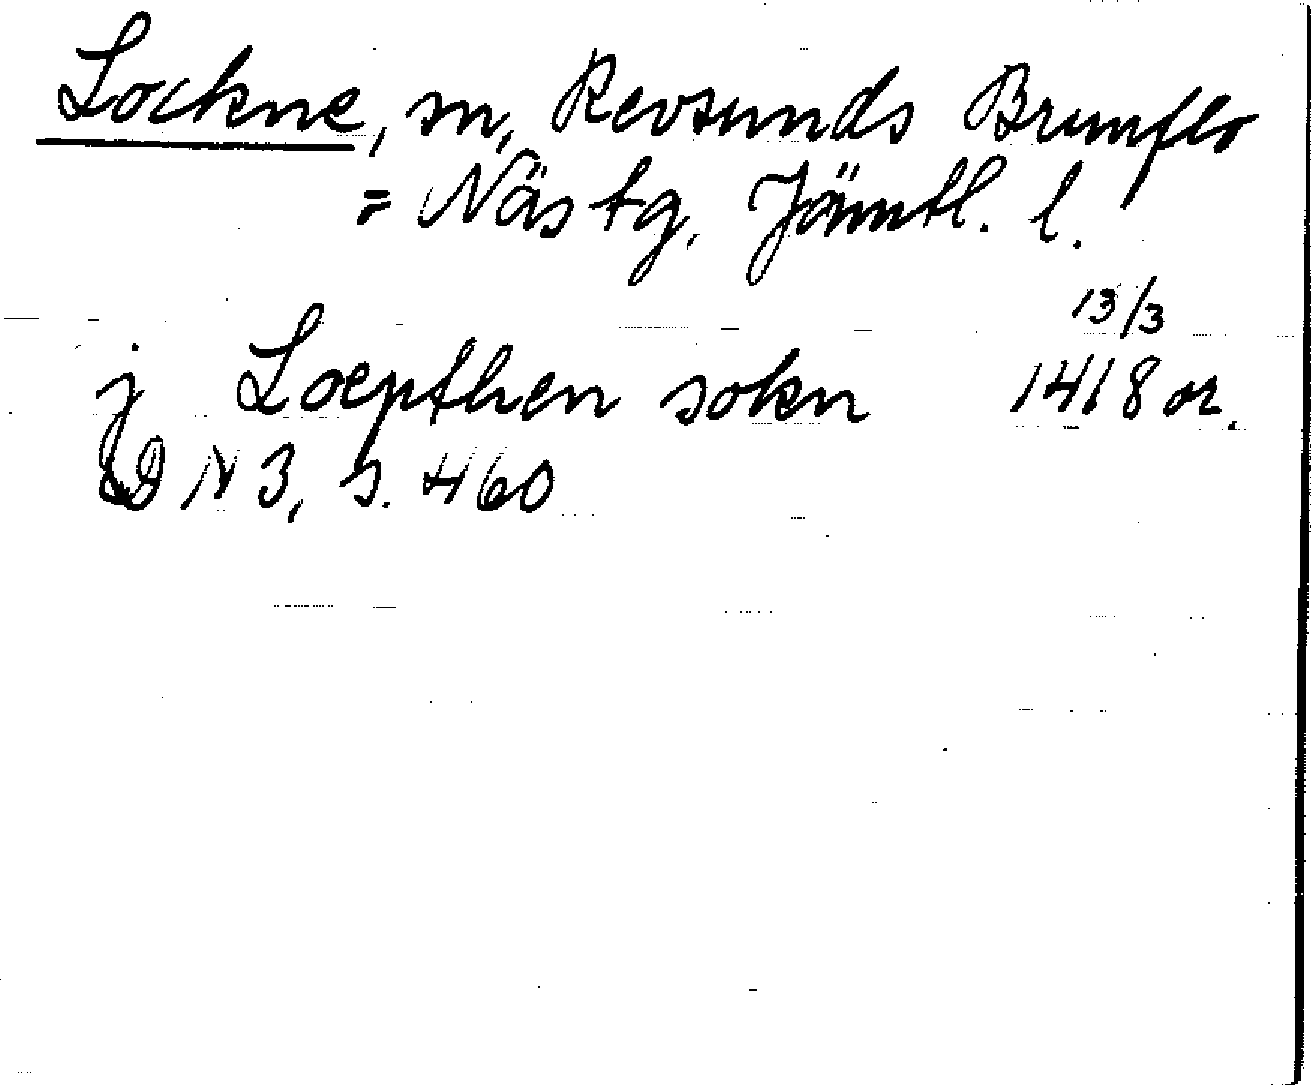 Lockne, sn, Revsunds Brunflo
= Näs tg, Jämtl. l.
13/3
j Loepthen sokn 1418 or.
DN 3, s. 460